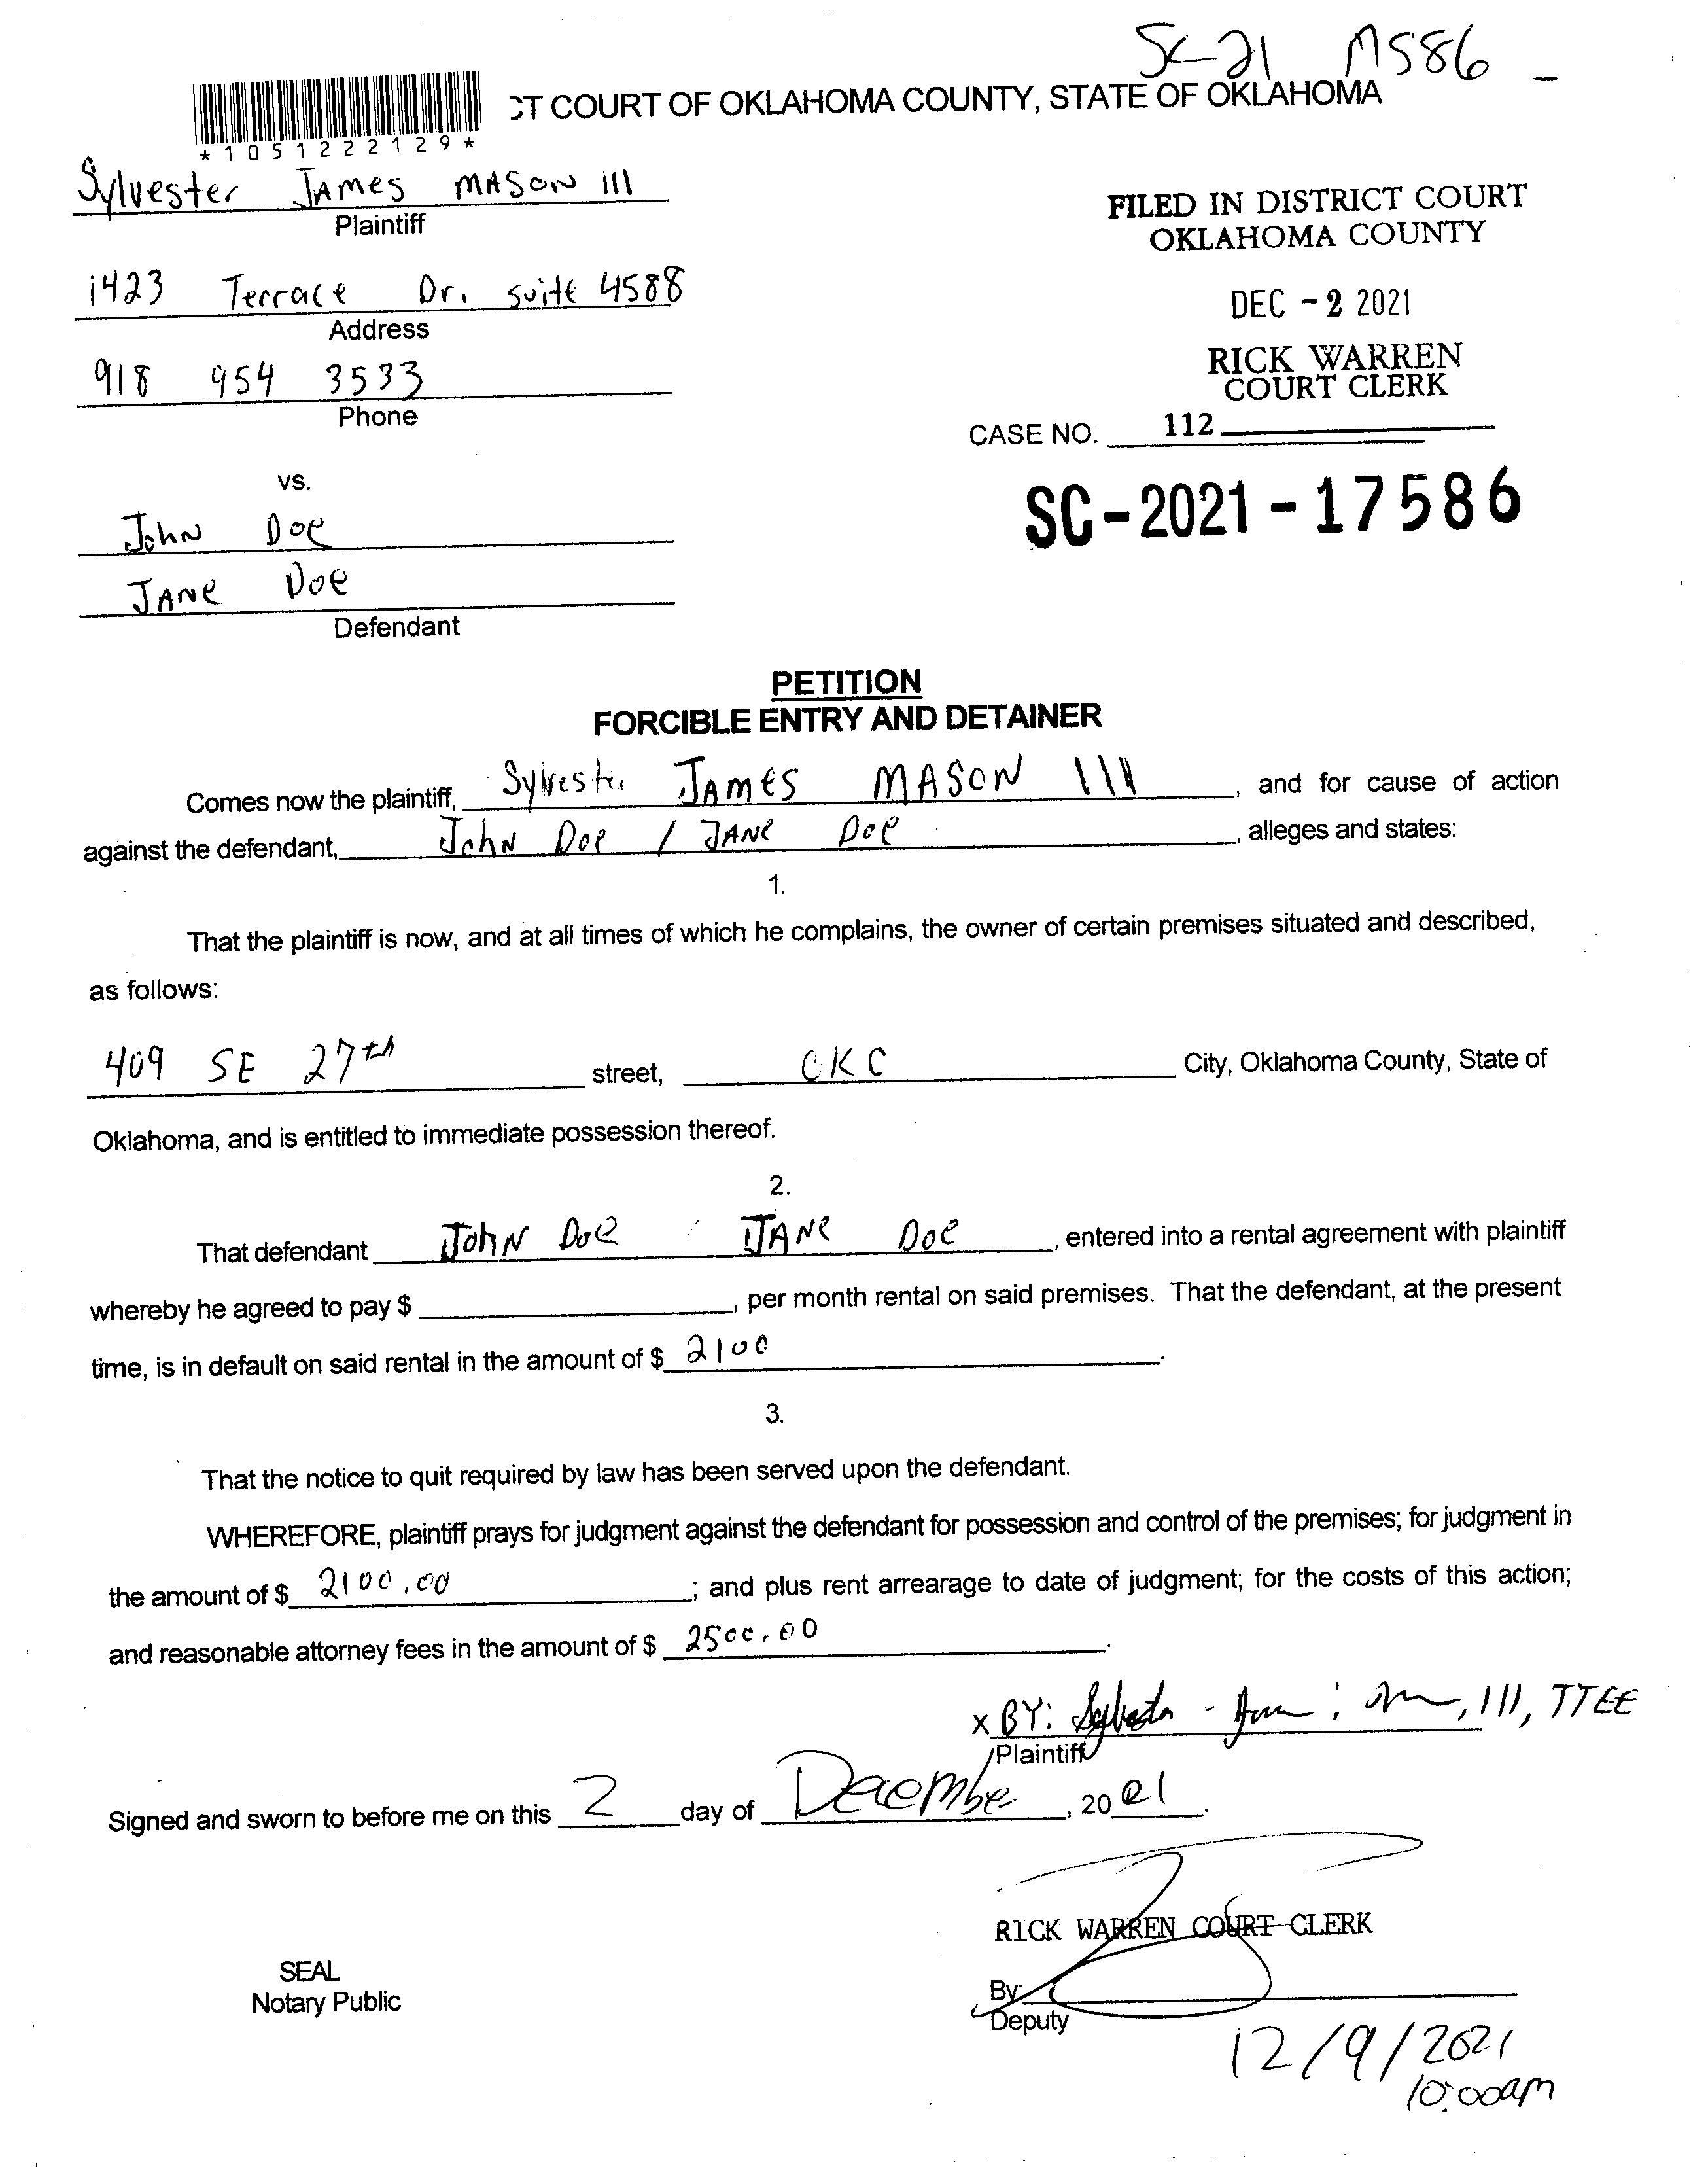 SC-21 17586
CT COURT OF OKLAHOMA COUNTY, STATE OF OKLAHOMA
*1051222129*
Sylvester JAMES MASON III
Plaintiff
1423 Terrace Dr. suite 4588
Address
918 954 3533
Phone
FILED IN DISTRICT COURT
OKLAHOMA COUNTY
DEC - 2 2021
RICK WARREN
COURT CLERK
CASE NO. 112
SC-2021-17586
vs.
John Doe
JANE Doe
Defendant
PETITION
FORCIBLE ENTRY AND DETAINER
Comes now the plaintiff, Sylvester JAMES MASON III, and for cause of action
against the defendant, John Doe / JANE Doe, alleges and states:
1.
That the plaintiff is now, and at all times of which he complains, the owner of certain premises situated and described,
as follows:
409 SE 27th street, OKC City, Oklahoma County, State of
Oklahoma, and is entitled to immediate possession thereof.
2.
That defendant John Doe / JANE Doe, entered into a rental agreement with plaintiff
whereby he agreed to pay $ , per month rental on said premises. That the defendant, at the present
time, is in default on said rental in the amount of $ 2100.
3.
That the notice to quit required by law has been served upon the defendant.
WHEREFORE, plaintiff prays for judgment against the defendant for possession and control of the premises; for judgment in
the amount of $ 2100.00; and plus rent arrearage to date of judgment; for the costs of this action;
and reasonable attorney fees in the amount of $ 2500.00.
x BY: , III, TTEE
Plaintiff
Signed and sworn to before me on this 2 day of Decembe, 2021.
RICK WARREN COURT CLERK
SEAL
Notary Public
By:
Deputy
12/9/2021
10:00am